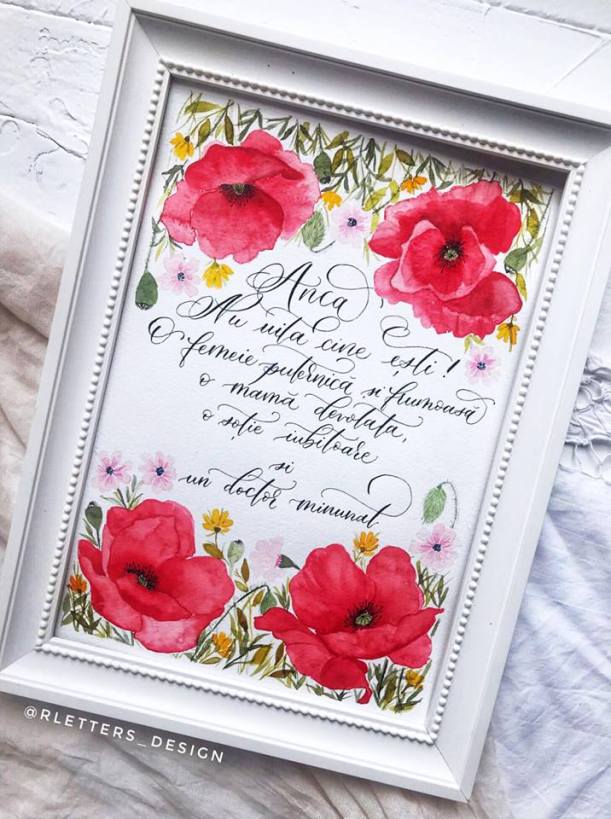 Anca
Nu uita cine ești!
O femeie puternică și frumoasă
o mamă devotată,
o soție iubitoare
și
un doctor minunat
@RLETTERS_DESIGN